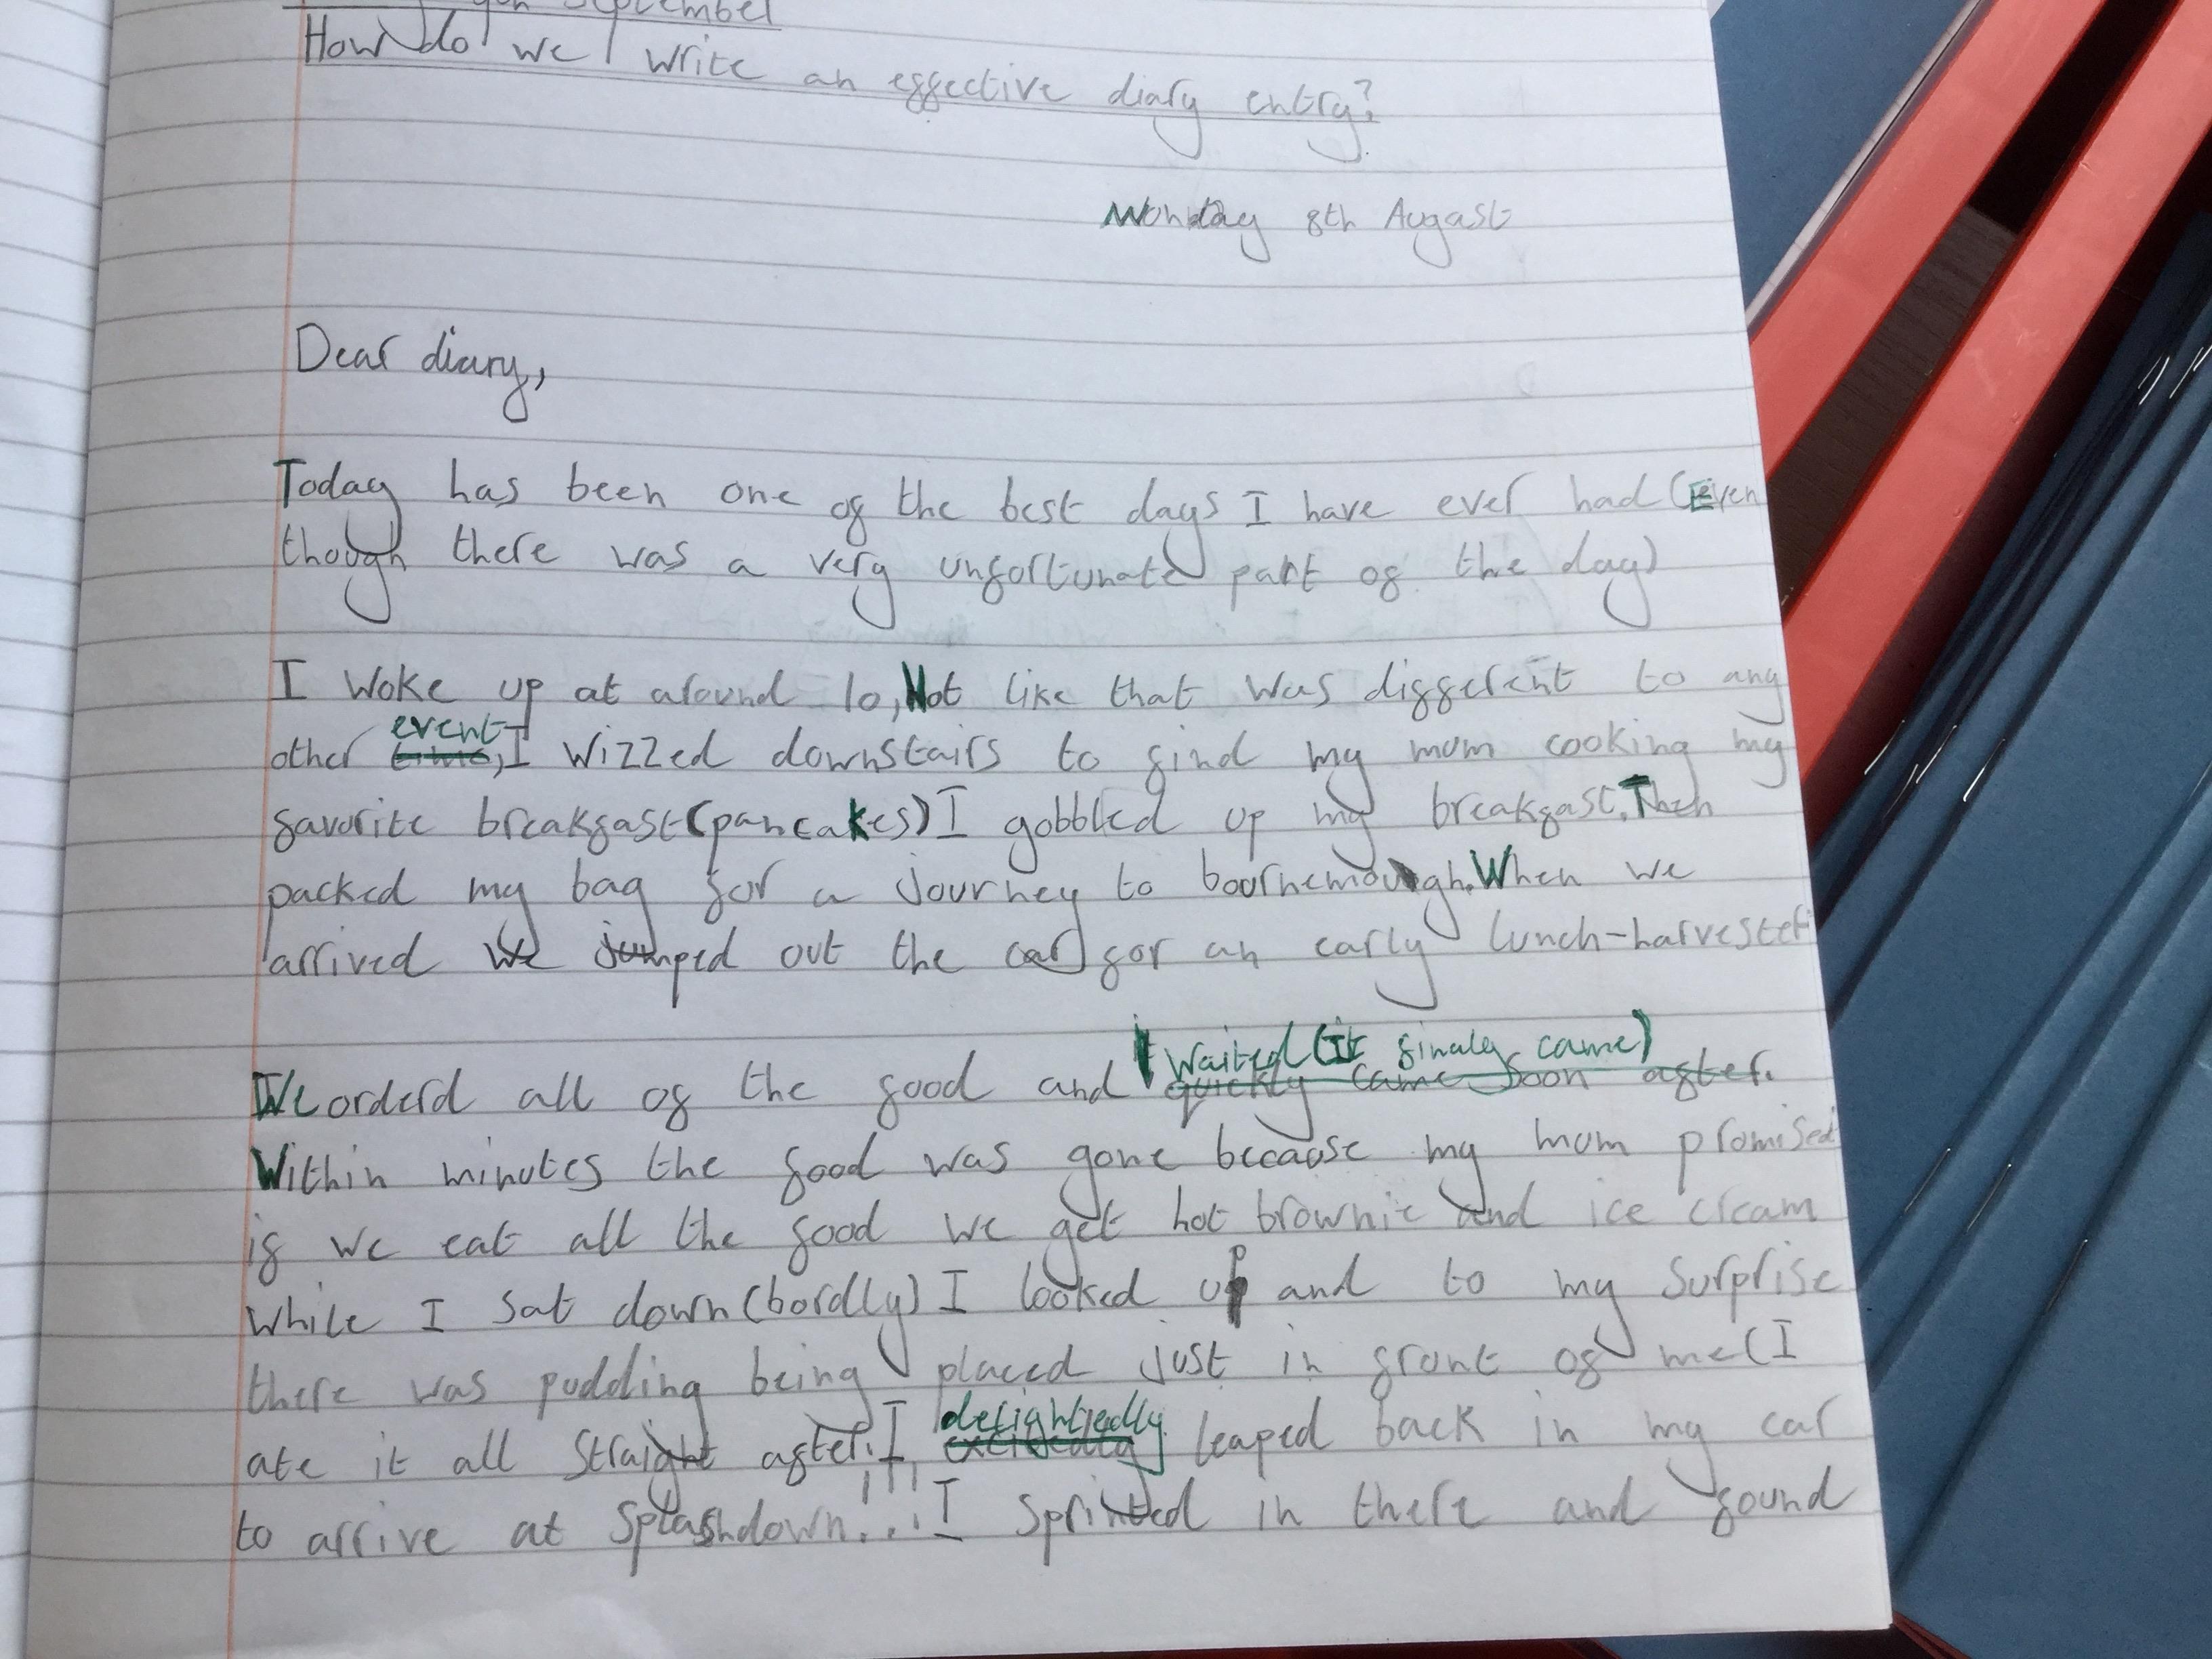 September
How do we write an effective diary entry?
Monday 8th Augast
Dear diary,
Today has been one of the best days I have ever had (Even
though there was a very unfortunate part of the day)
I woke up at around 10, Not like that was different to any
other event I wizzed downstairs to find my mum cooking my
favorite breakfast (pancakes) I gobbled up my breakfast. Then
packed my bag for a journey to bournemough. When we
arrived we jumped out the car for an early lunch-harvester
We orderd all of the food and waited (It finaly came)
quickly came soon after.
Within minutes the food was gone because my mum promised
if we eat all the food we get hot brownie and ice cream
while I sat down (bordly) I looked up and to my surprise
there was pudding being placed just in front of me (I
ate it all straight after. I delightedly leaped back in my car
to arrive at Splashdown... I sprinted in there and found